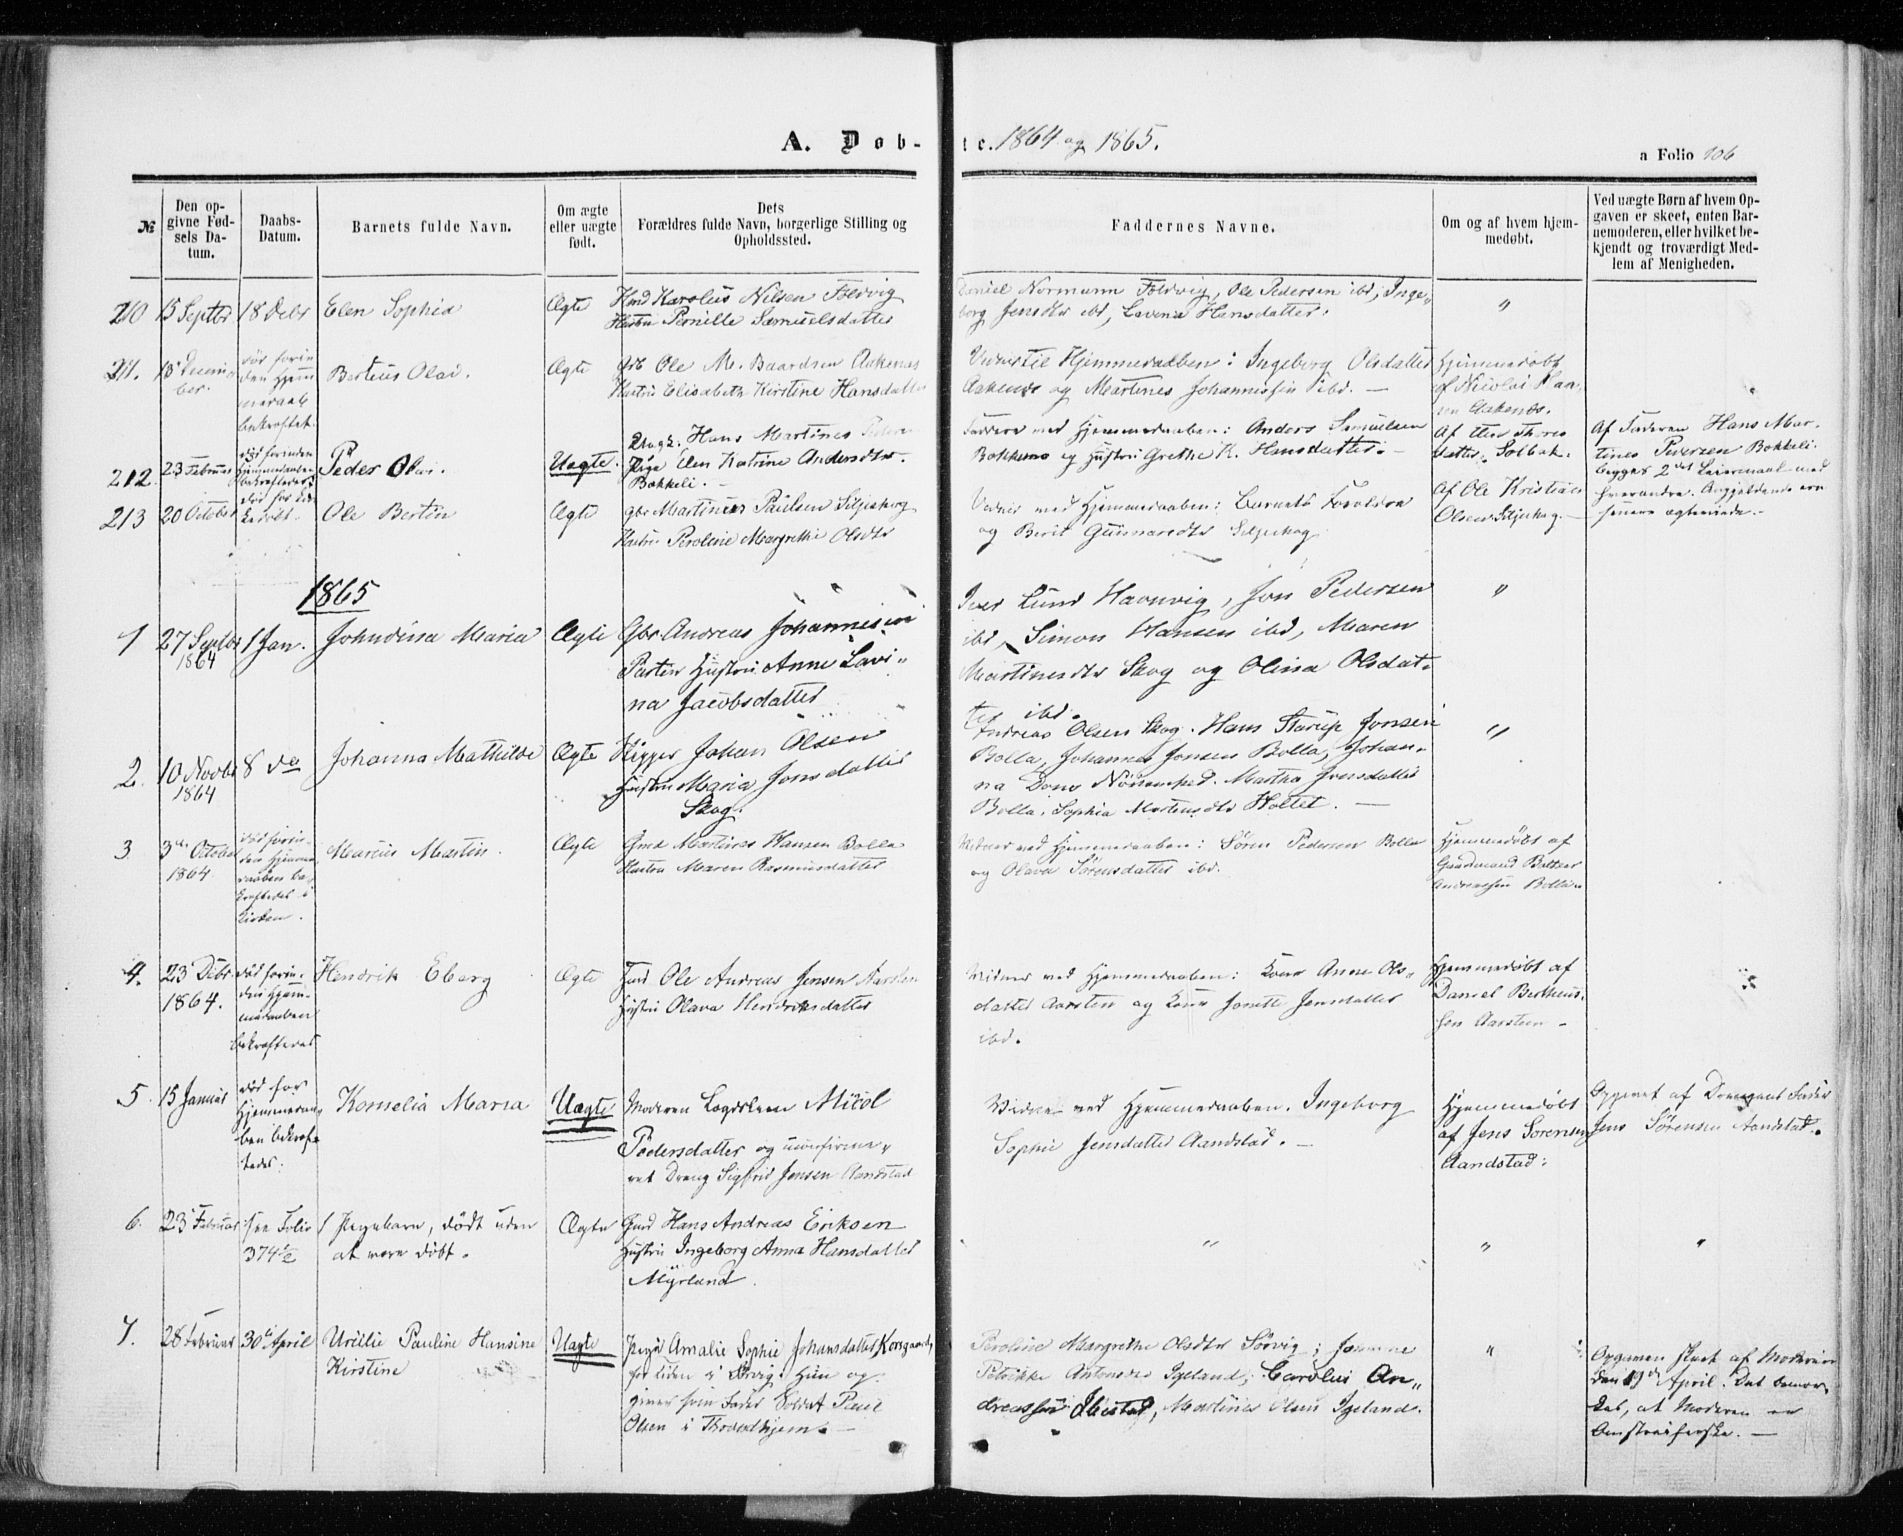 A. Döb-
te. 1864 og 1865.
a Folio 106
№
Den op-
givne Fød-
sels Da-
tum.
Daabs-
Datum.
Barnets fulde Navn.
Om ægte
eller uægte
født.
Dets
Forældres fulde Navn, borgerlige Stilling og
Opholdssted.
Faddernes Navne.
Om og af hvem hjem-
medøbt.
Ved uægte Børn af hvem Op-
gaven er skeet, enten Bar-
nemoderen, eller hvilket be-
kjendt og troværdigt Med-
lem af Menigheden.
210
15 Septbr
18 Debr
Elen Sophia
Ægte
Karolus Nilsen Foldvig
Hustru Pernille Samuelsdatter
Daniel Normann Foldvig, Ole Pedersen ibd, Inge-
borg Jensdtr ibd, Lavina Hansdatter.
"
211.
13
ber.
den Hjem
bekræftet.
Berteus Olai.
Ægte
Ole M. Baardsen Aakenes
Hustru Elisabeth Kirstine Hansdatter
Vidner til Hjemmedaaben: Ingeborg Olsdatter
Aakenes og Martines Johannissen ibd. —
Hjemmedøbt
af Nicolai
Aakenes.
212.
23 Februar
Hjemmedaaben
Peder Olai.
Uægte.
Hans Martines
Pige Elen Katrine Andersdtr.
Bokkeli. —
Faddere ved Hjemmedaaben: Anders Samuelsen
og Hustru Grethe K. Hansdatter. —
Af
datter Solbak.
Af Faderen Hans Mar-
tines Pedersen Bokkeli.
begges 2det Leiermaal med
hverandre. Angjældende ere
senere ægteviede. —
213
20 October
Ole Bertin
Ægte
gbr Martines Paulsen Siljeskog
Hustru Peroline Margrethe Olsdtr
Vidner ved Hjemmedaaben: Barnets Forældre
og Berit Gunnarsdtr Siljeskog
Af Ole Kristian
Olsen Siljeskog. —
1865
1
27 Septbr
1864
1 Jan.
Johndina Maria
Ægte
Gbr Andreas Johannisen
Hustru Anne Lavi-
na Jacobsdatter
Iver Lund Havnvig, Jon Pedersen
ibd, Simon Hansen ibd, Maren
Martinesdtr Skog og Olina Olsdat-
ter ibd.
"
2.
10 Novbr
1864
8 do
Johanna Mathilde
Ægte
Skipper Johan Olsen
Hustru Maria Jonsdatter
Skog.
Andreas Olsen Skog. Hans Starup Jonsen
Bolla, Johannes Jonsen Bolla, Johan-
na Martha Jonsdatter
Bolla, Sophia Mortensdtr Holtet. —
"
3
3die October
1864
den Hjemme
daaben be-
kræftedes i
Kirken.
Marius Martin.
Ægte
Gmd Martines Hansen Bolla
Hustru Maren Rasmusdatter
Vidner ved Hjemmedaaben: Søren Pedersen Bolla
og Olava Sørensdatter ibd.
Hjemmedøbt af
Gaardmand
Andreassen Bolla
4.
23 Debr
1864.
død forin-
den Hjem-
medaaben
bekræftedes
Hendrik Eberg
Ægte
Ole Andreas Jensen Aarsten
Hustru Olava Hendriksdatter
Vidner ved Hjemmedaaben: Kone Anne Ols-
datter Aarsten og Kone Jonette Jensdatter
ibd.
Hjemmedøbt af
Daniel Bertheus-
sen Aarsten —
5.
15 Januar
død før
Hjemmedaa-
ben bekræf-
tedes.
Kornelia Maria
Uægte
Moderen Lægdslem Micol
Pedersdatter og ukonfirme-
ret Dreng Sigfrid Jensen Aandstad
Vidne ved Hjemmedaaben. Ingeborg
Sophie Jensdatter Aandstad. —
Hjemmedøbt
af Jens Sørensen
Aandstad.
Opgivet af Drengens Fader
Jens Sørensen Aandstad.
6.
23 Februar
see Folio
374
Pigebarn, dødt uden
at være døbt.
Ægte
Gmd Hans Andreas Eriksen
Hustru Ingeborg Anna Hansdatter
Myrland.
"
"
"
7.
28 Februar
30te April
Uriilie Pauline Hansine
Kirstine
Uægte
Pige Amalie Sophie Johansdatter Korsgaard,
for tiden i Sørvig. Hun op-
giver som Fader Soldat Paul
Olsen i Throndhjem. —
Peroline Margrethe Olsdtr Sørvig; Jonine
Petrikke Antonsdtr Igeland, Carolus An-
dreassen Ibestad, Martines Olsen Igeland.
"
Opgaven skeet af Moderen
den 19de April. Det bemær-
kes, at Moderen er